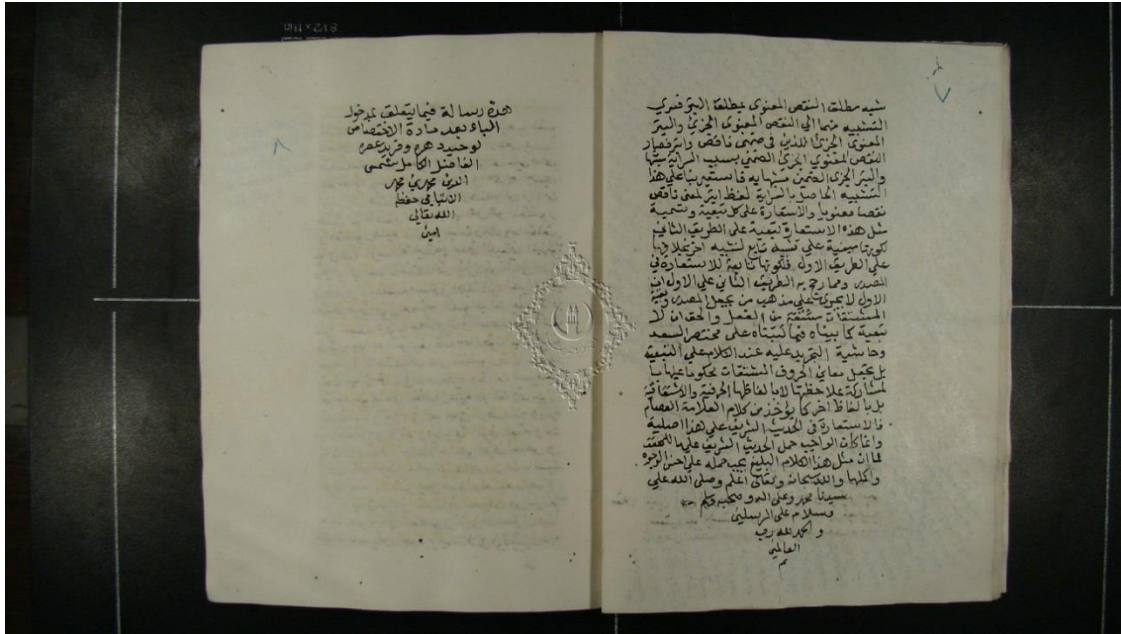 شبه مطلق النقص المعنوي بمطلق البتر فسرى
التشبيه منهما الي النقص المعنوى الجزئ والبتر
المعنوى الجزئ اللذين فى ضمنى ناقص وابتر فصار
النقص المعنوي الجزئ الضمنى بسبب السراية مشبها
والبتر الجزى الضمنى مشبها به فاستعير بناء على هذا
التشبيه الحاصل بالسراية لفظ ابتر لمعنى ناقص
نقصا معنويا والاستعارة على كل تبعية وتسمية
مثل هذه الاستعارة تبعية على الطريق الثانى
لكونها مبنية على تشبيه تابع لتشبيه اخر بخلافها
على الطريق الاول فلكونها تابعة للاستعارة فى
المصدر ومما رجح به الطريق الثانى علي الاول ان
الاول لا يجرى على مذهب من يجعل المصدر وبقية
المشتقات مشتقة من الفعل والحق ان لا
تبعية كما بيناه فيما كتبناه على مختصر السعد
وحاشية التجريد عليه عند الكلام علي التبعية
بل يجعل معانى الحروف المشتقات محكوما عليها بـ
لمشاركة بملاحظتها لا بالفاظها الحرفية والاشتقاقية
بل بالفاظ اخر كما يؤخذ من كلام العلامة العصام
فالاستعارة فى الحديث الشريف على هذا اصلية
وانما كان الواجب حمل الحديث الشريف على
لما ان مثل هذا الكلام البليغ يجب حمله على احسن الوجوه
واكملها والله سبحانه وتعالى اعلم وصلى الله على
سيدنا محمد وعلى اله وصحبه وسلم
وسلام على المرسلين
والحمد لله رب
العالمين
م
٧
هذه رسالة فيما يتعلق بدخول
الباء بعد مادة الاختصاص
لوحيد دهره وفريد عصره
الفاضل الكامل شمس
الدين محمد بن محمد
الانبابى حفظه
الله تعالى
امين
٨